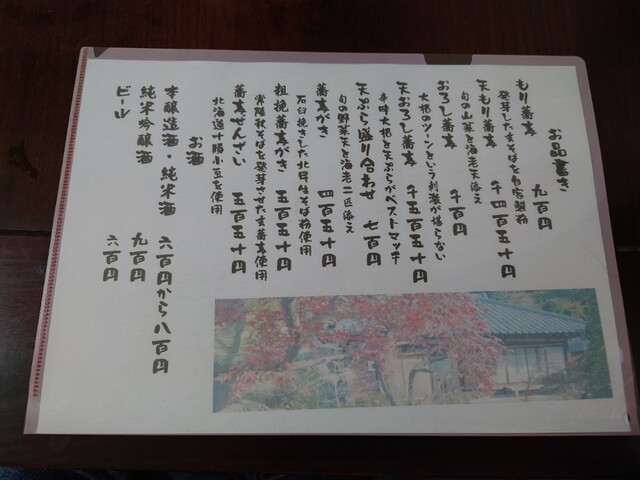 お品書き
もり蕎麦 九百円
発芽したそばを自家製粉
天もり蕎麦 千四百五十円
旬の山菜と海老天添え
おろし蕎麦 千百円
大根のツーンという刺激が堪らない
天おろし蕎麦 千五百五十円
辛味大根と天ぷらがベストマッチ
天ぷら盛り合わせ 七百円
旬の野菜天と海老二匹添え
蕎麦がき 四百五十円
石臼挽きした北早生そば粉使用
粗挽蕎麦がき 五百五十円
常陸秋そばを発芽させた玄蕎麦使用
蕎麦ぜんざい 五百五十円
北海道十勝小豆を使用
お酒
本醸造酒・純米酒 六百円から八百円
純米吟醸酒 九百円
ビール 六百円